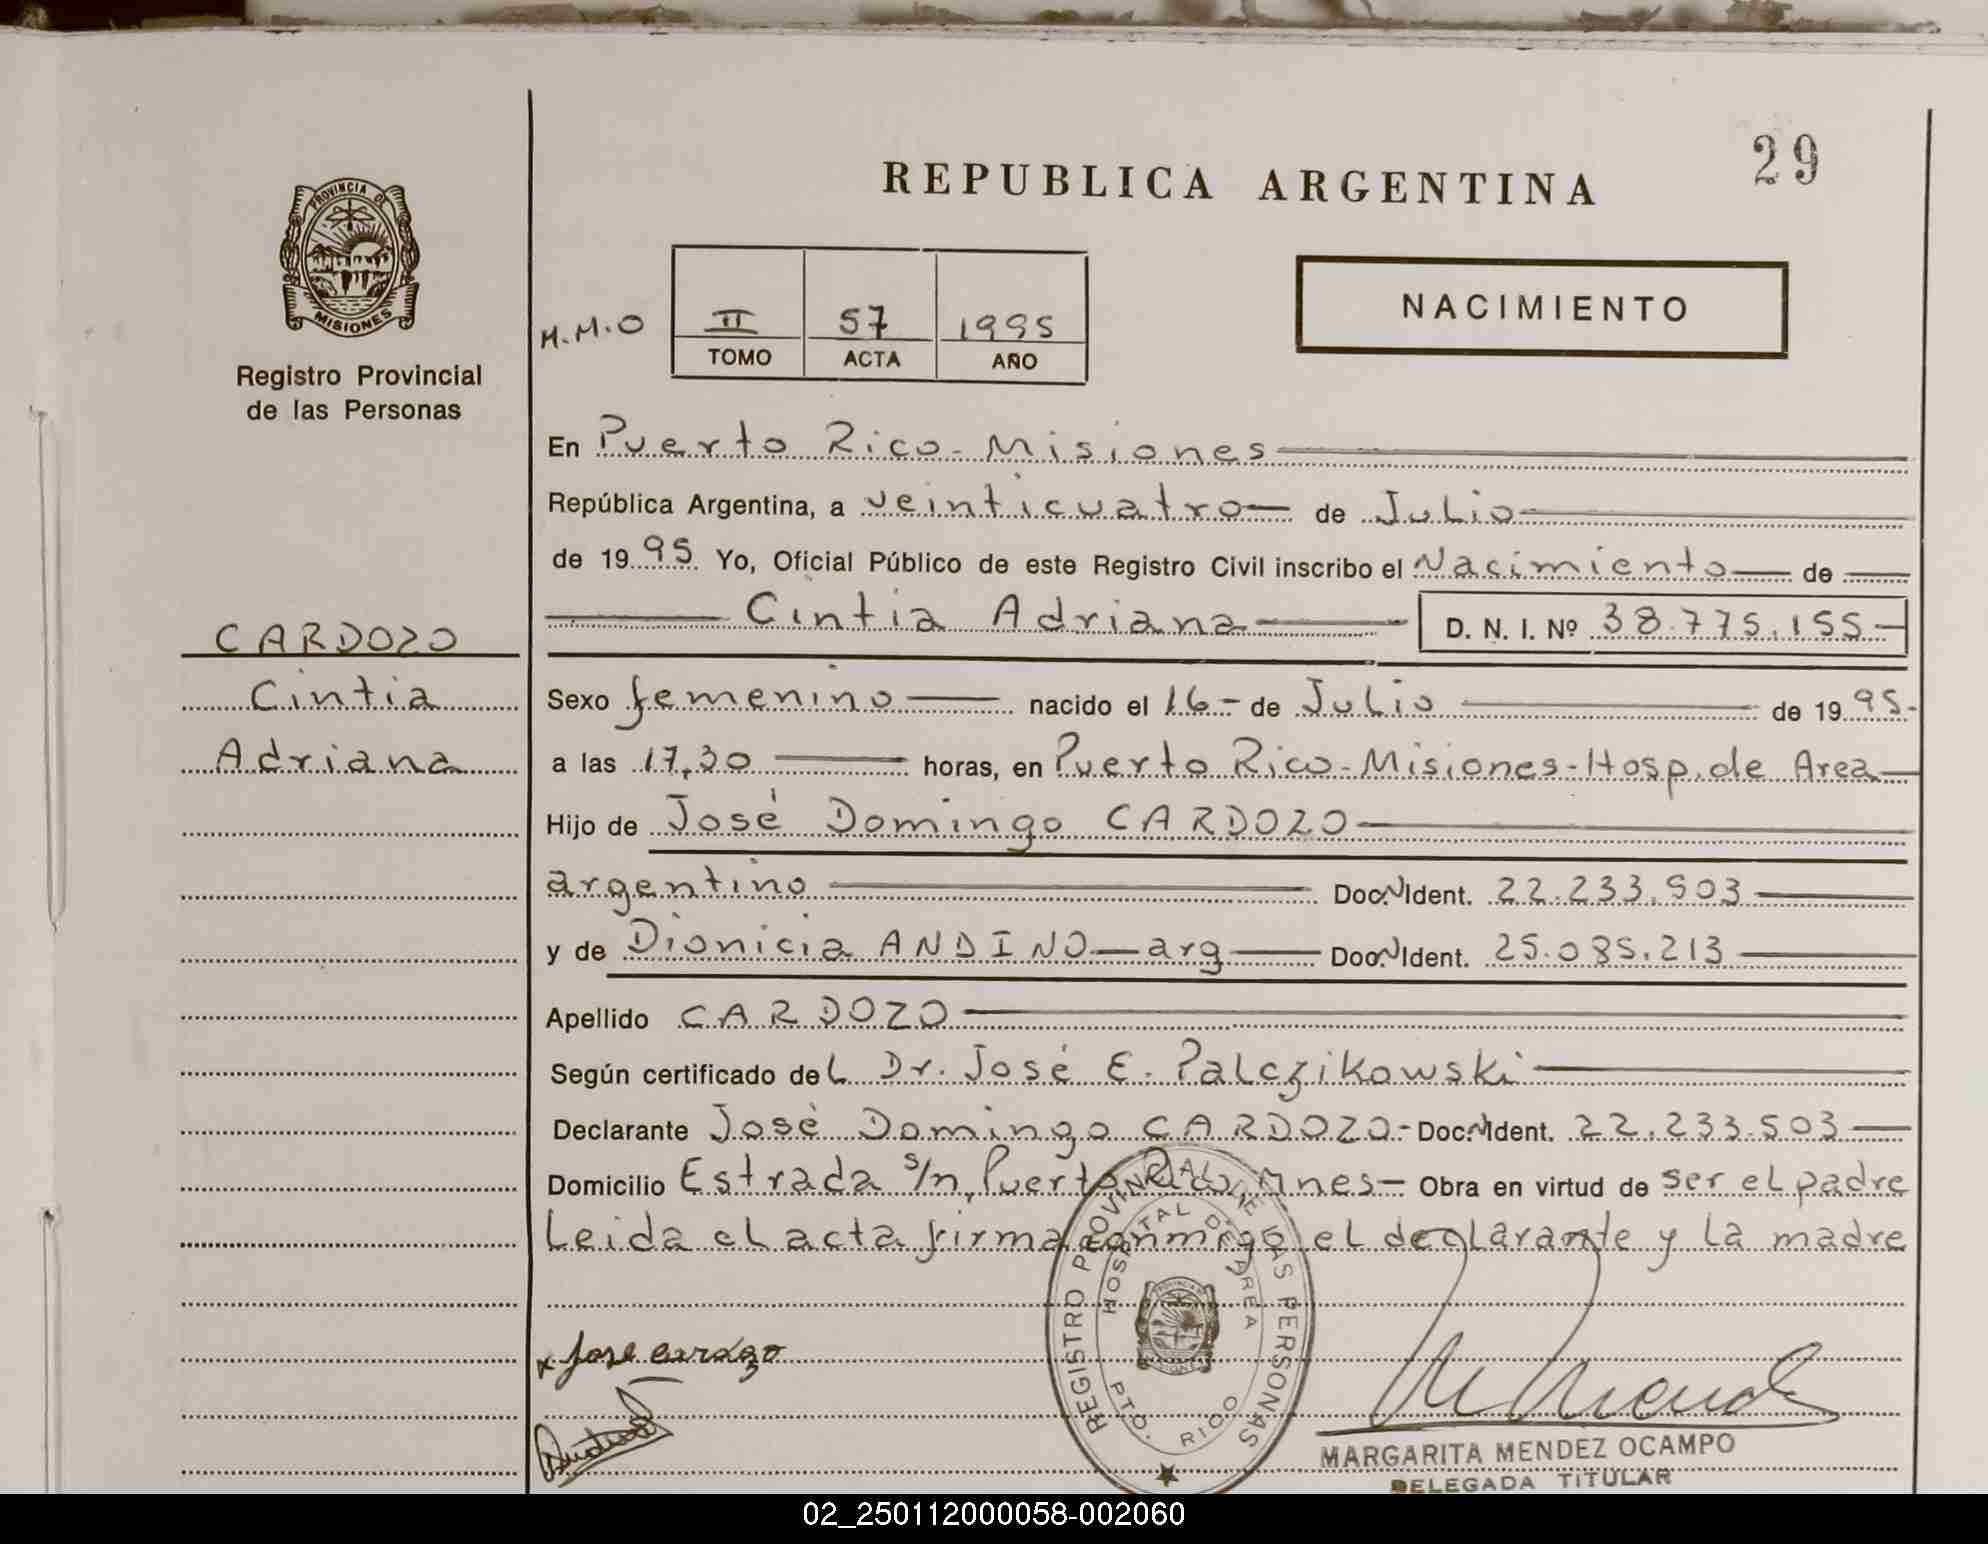 29
REPUBLICA ARGENTINA
PROVINCIA DE
MISIONES
Registro Provincial
de las Personas
M.M.O
II 57 1995
TOMO ACTA AÑO
NACIMIENTO
En Puerto Rico - Misiones
República Argentina, a veinticuatro de Julio
de 1995 Yo, Oficial Público de este Registro Civil inscribo el Nacimiento de
Cintia Adriana D. N. I. Nº 38.775.155-
CARDOZO
Cintia
Adriana
Sexo femenino nacido el 16 - de Julio de 1995-
a las 17,30 horas, en Puerto Rico - Misiones - Hosp. de Area
Hijo de José Domingo CARDOZO
argentino Doc.N Ident. 22.233.503
y de Dionicia ANDINO - arg Doc.N Ident. 25.085.213
Apellido CARDOZO
Según certificado del Dr. José E. Palczikowski
Declarante José Domingo CARDOZO - Doc.N Ident. 22.233.503
Domicilio Estrada s/n, Puerto Rico Mnes - Obra en virtud de ser el padre
Leida el acta firma conmigo el declarante y la madre
x Jose Cardozo
REGISTRO PROVINCIAL DE LAS PERSONAS
HOSPITAL DE AREA
PTO. RICO
MARGARITA MENDEZ OCAMPO
DELEGADA TITULAR
02_250112000058-002060